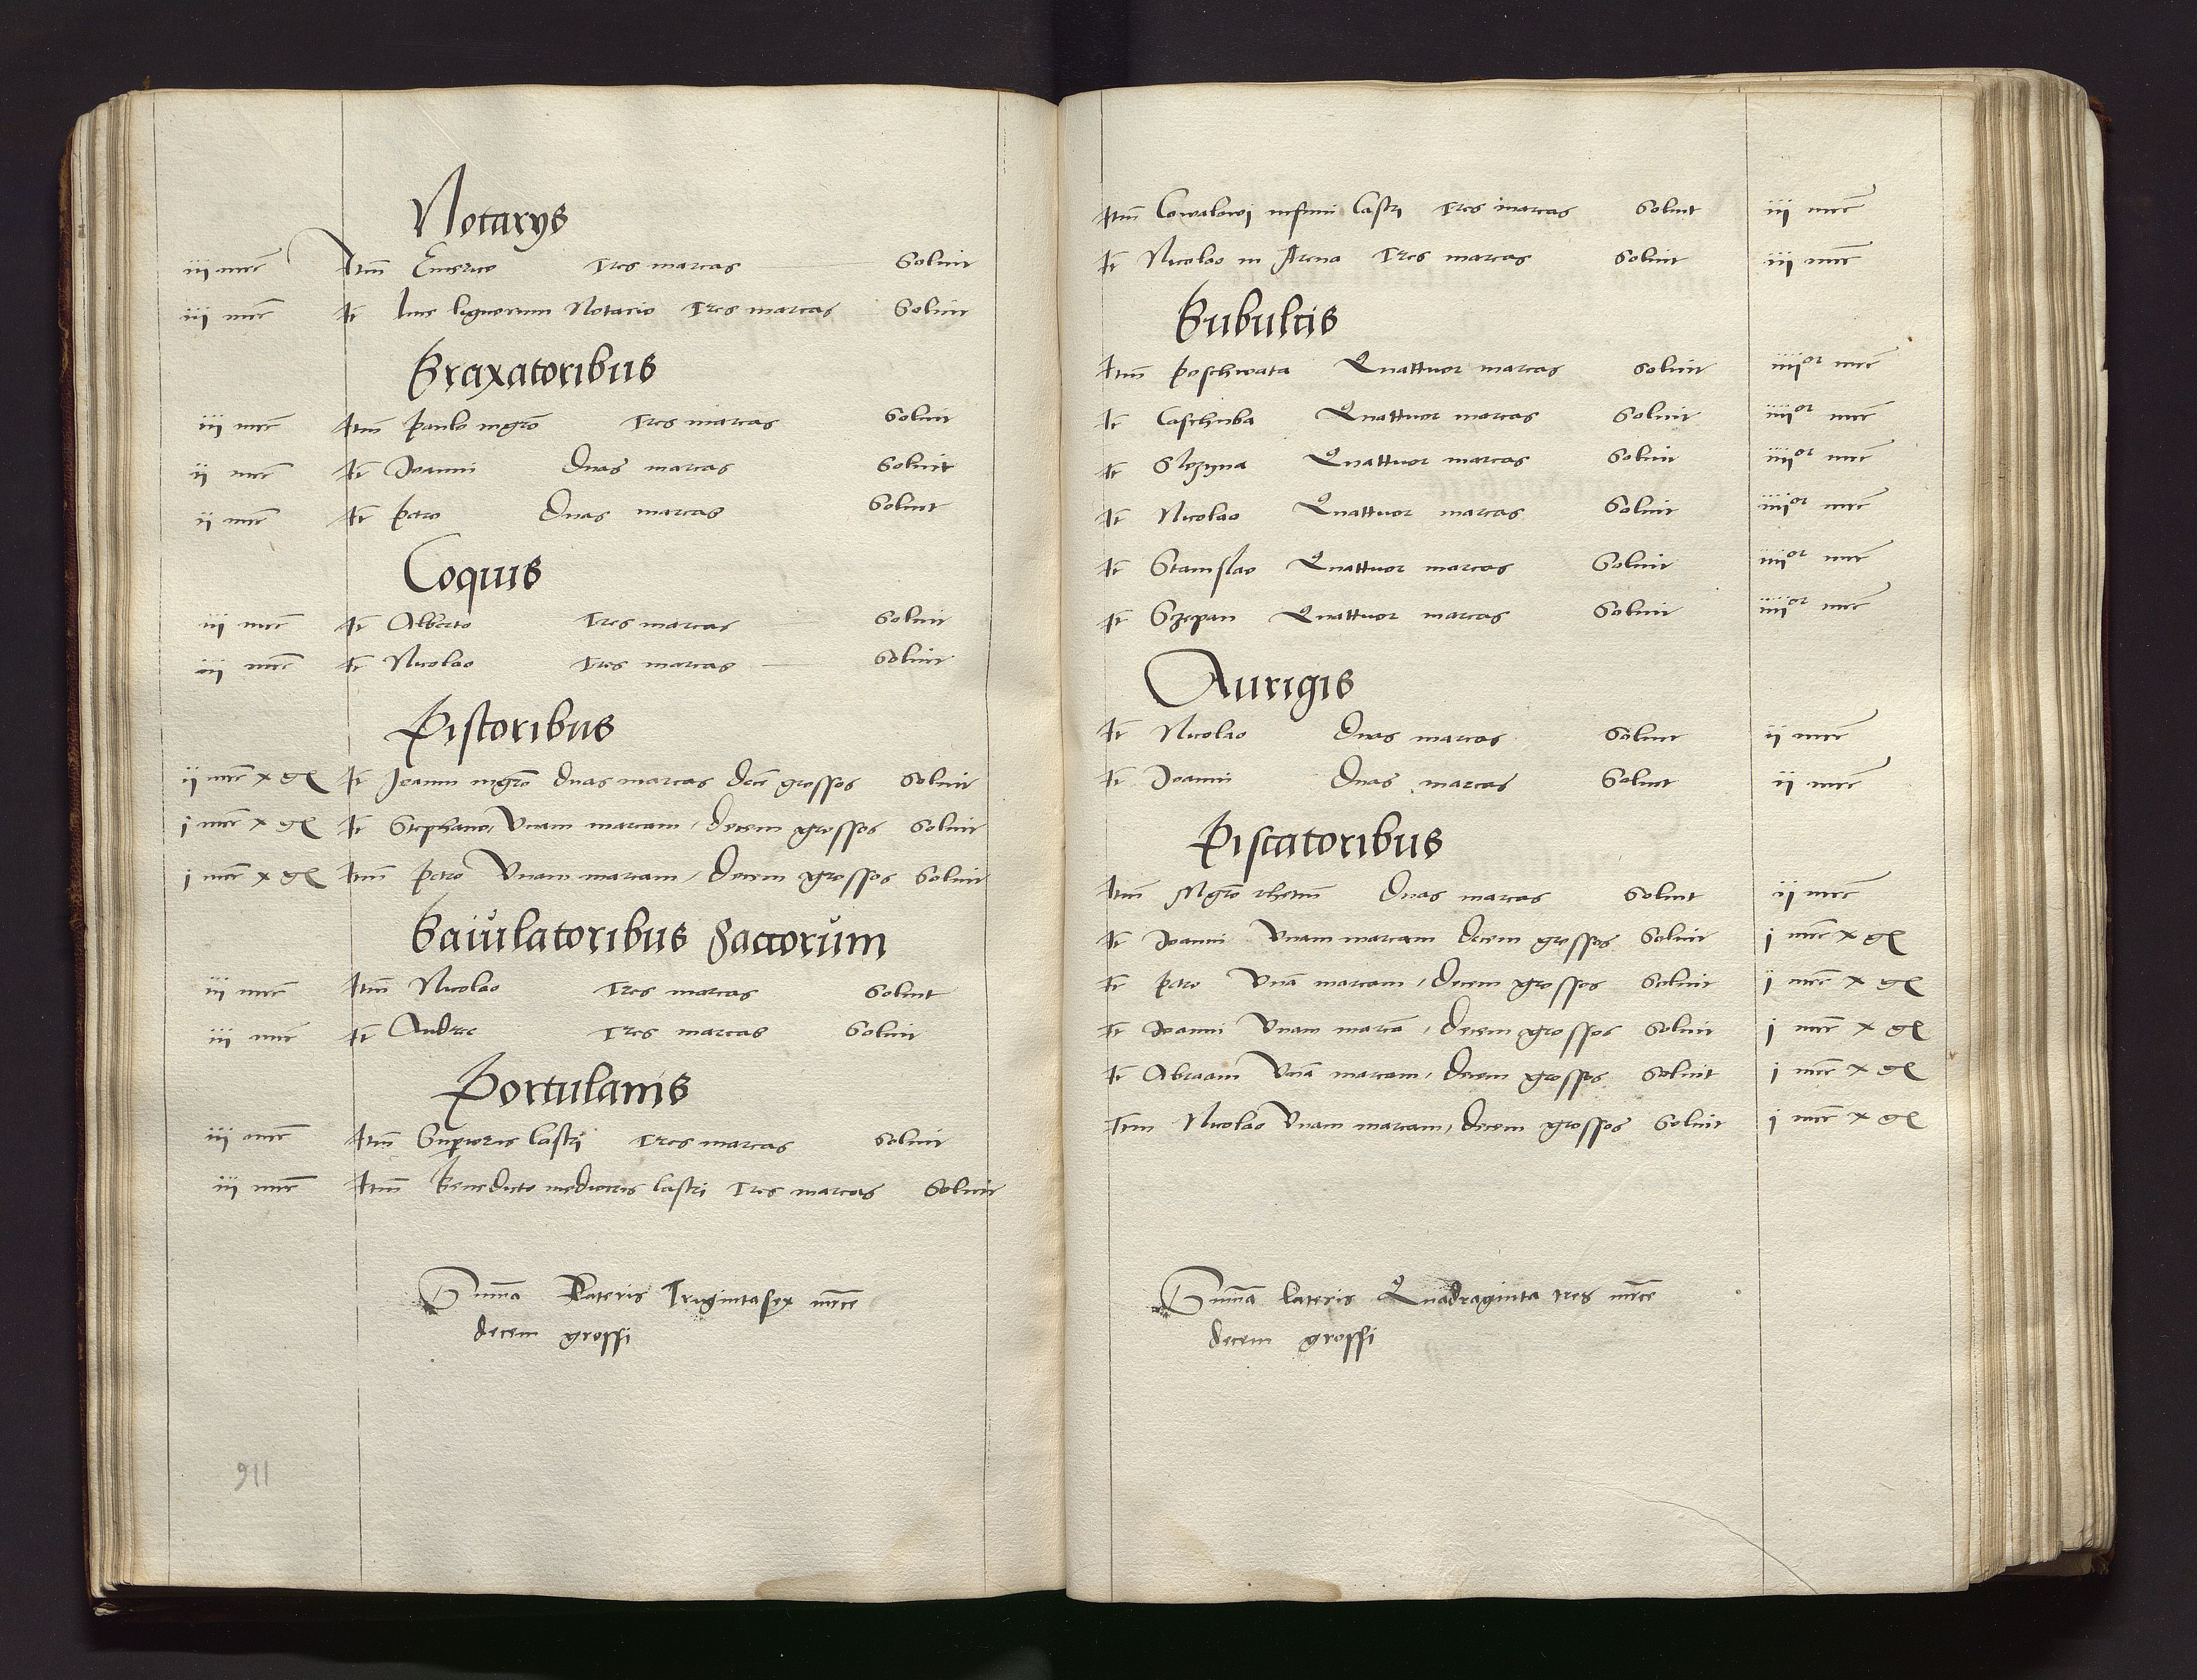 Notarys
iii mrc Itm Emerico Tres marcas Soluit
iii mrc It lignorum Notario Tres marcas Soluit
Braxatoribus
iii mrc Itm paulo mgro Tres marcas Soluit
ii mrc It Joanni Duas marcas Soluit
ii mrc It petro Duas marcas Soluit
Coquis
iii mrc It Alberto Tres marcas Soluit
iii mrc It Nicolao Tres marcas Soluit
Pistoribus
ii mrc x gr It Joanni mgro duas marcas dece grossos Soluit
i mrc x gr It Stephano, Vnam marcam, decem grossos Soluit
i mrc x gr Itm petro Vnam marcam, Decem grossos Soluit
Baiulatoribus Saccorum
iii mrc Itm Nicolao Tres marcas Soluit
iii mrc It Andree Tres marcas Soluit
Portulanis
iii mrc Itm Superioris Castri Tres marcas Soluit
iii mrc Itm Benedicto mediocris castri Tres marcas Soluit
Summa Lateris Trigintasex mrce
decem grossi
116
Itm Cowalowi infimi Castri Tres marcas Soluit iii mrc
It Nicolao in Arena Tres marcas Soluit iii mrc
Subulcis
Itm poschwata Quattuor marcas Soluit iiii or mrc
It Caschuba Quattuor marcas Soluit iiii or mrc
It Quattuor marcas Soluit iiii or mrc
It Nicolao Quattuor marcas Soluit iiii or mrc
It Stanislao Quattuor marcas Soluit iiii or mrc
It Sczepan Quattuor marcas Soluit iiii or mrc
Aurigis
It Nicolao Duas marcas Soluit ii mrc
It Joanni Duas marcas Soluit ii mrc
Piscatoribus
Itm Mgro Duas marcas Soluit ii mrc
It Joanni Vnam marcam decem grossos Soluit i mrc x gr
It petro Vna marcam, decem grossos Soluit i mrc x gr
It Joanni Vnam marca, decem grossos Soluit i mrc x gr
It Abraam Vna marcam, decem grossos Soluit i mrc x gr
Item Nicolao Vnam marcam, decem grossos Soluit i mrc x gr
Summa Lateris Quadraginta tres mrce
decem grossi